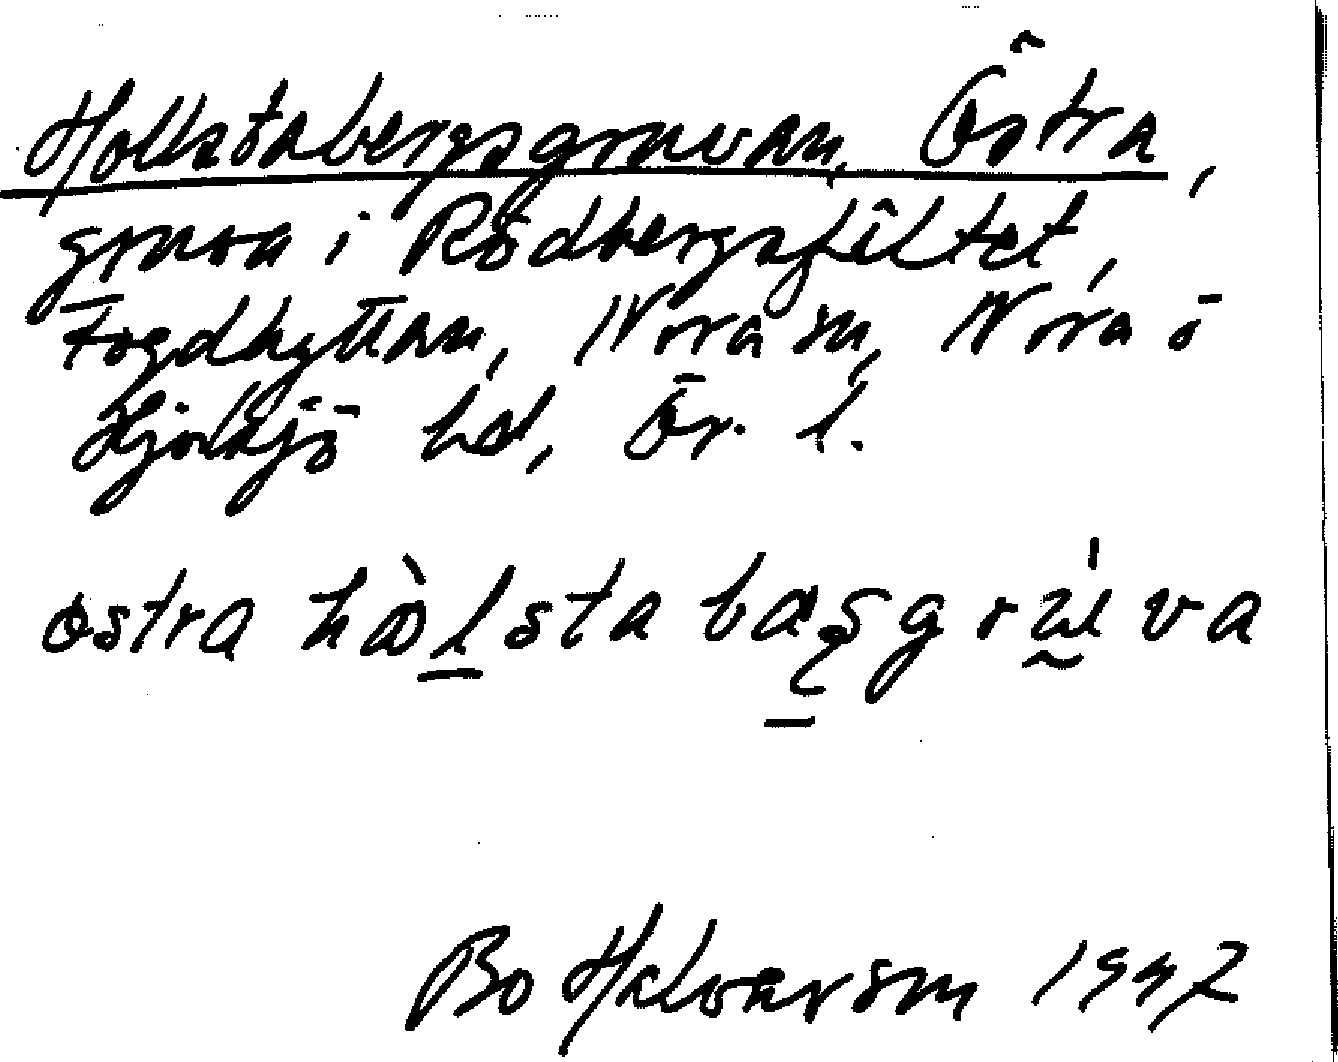 Hollstabergsgruvan, Östra,
gruva i Rödbergsfältet,
Fogdhyttan, Nora sn, Nora o
Hjulsjö hd, Ör. l.
östra hòlsta bæṣgrʉ́va
Bo Halvarson 1947